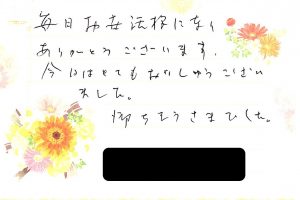 毎日
ありがとうございます。
今日はとてもおいしゅうござい
ました。
御ちそうさまでした。